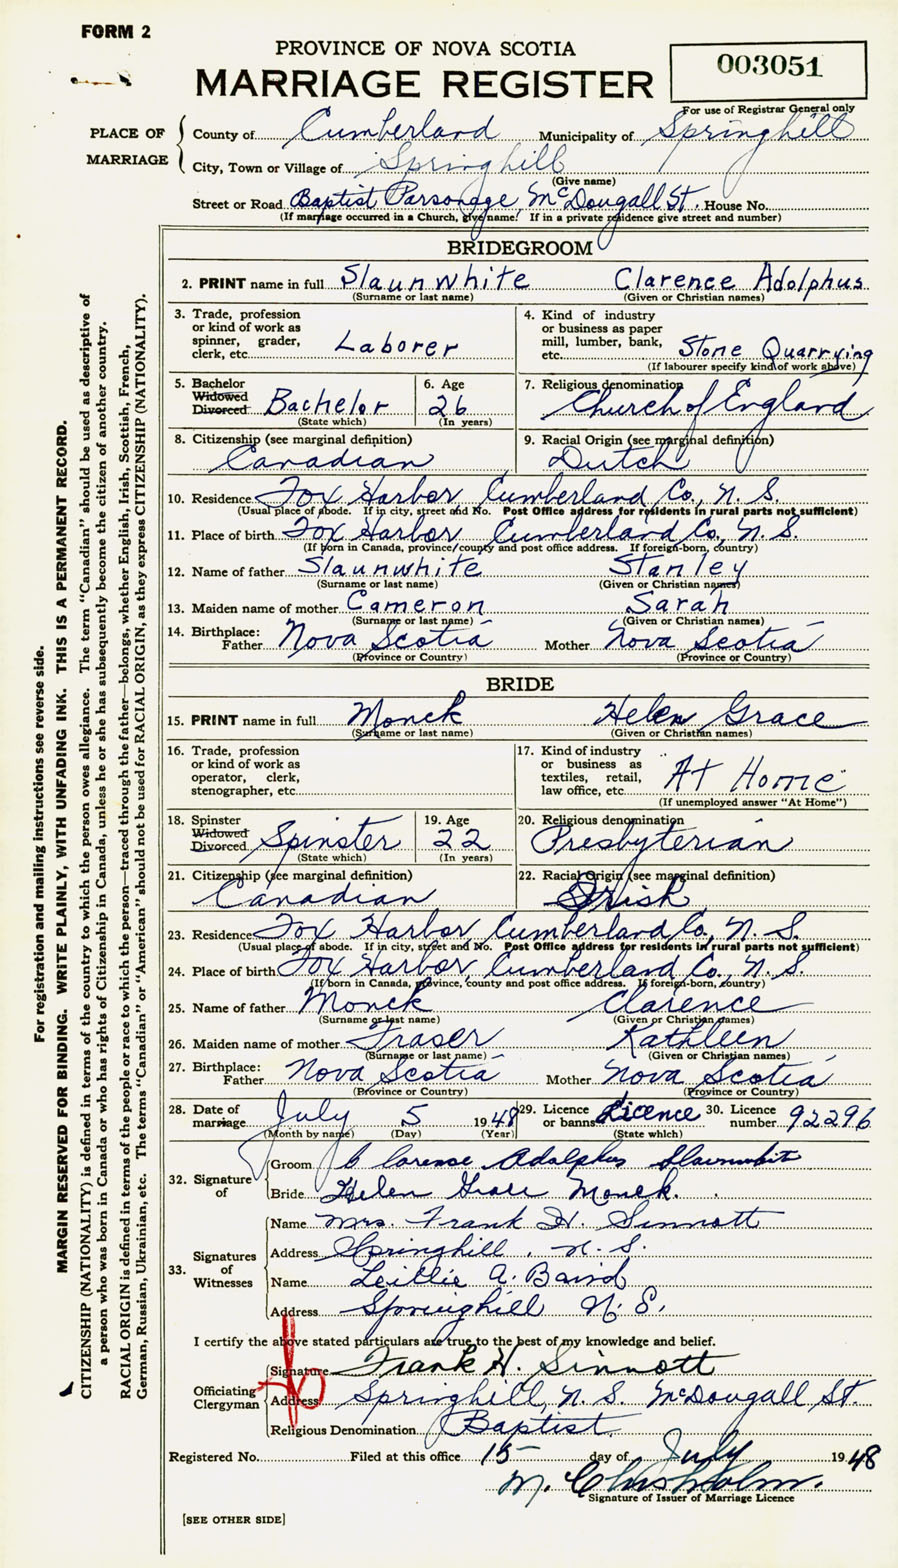 FORM 2
PROVINCE OF NOVA SCOTIA
MARRIAGE REGISTER
003051
For use of Registrar General only
PLACE OF MARRIAGE
County of Cumberland Municipality of Springhill
City, Town or Village of Springhill
(Give name)
Street or Road Baptist Parsonage McDougall St. House No.
(If marriage occurred in a Church, give name. If in a private residence give street and number)
BRIDEGROOM
2. PRINT name in full Slaunwhite Clarence Adolphus
(Surname or last name) (Given or Christian names)
3. Trade, profession or kind of work as spinner, grader, clerk, etc. Laborer
4. Kind of industry or business as paper mill, lumber, bank, etc. Stone Quarrying
(If labourer specify kind of work above)
5. Bachelor Widowed Divorced Bachelor
(State which)
6. Age 26
(In years)
7. Religious denomination Church of England
8. Citizenship (see marginal definition)
Canadian
9. Racial Origin (see marginal definition)
Dutch
10. Residence Fox Harbor Cumberland Co., N. S.
(Usual place of abode. If in city, street and No. Post Office address for residents in rural parts not sufficient)
11. Place of birth Fox Harbor Cumberland Co., N. S.
(If born in Canada, province/county and post office address. If foreign-born, country)
12. Name of father Slaunwhite Stanley
(Surname or last name) (Given or Christian names)
13. Maiden name of mother Cameron Sarah
(Surname or last name) (Given or Christian names)
14. Birthplace: Father Nova Scotia Mother Nova Scotia
(Province or Country) (Province or Country)
BRIDE
15. PRINT name in full Monck Helen Grace
(Surname or last name) (Given or Christian names)
16. Trade, profession or kind of work as operator, clerk, stenographer, etc.
17. Kind of industry or business as textiles, retail, law office, etc. At Home
(If unemployed answer "At Home")
18. Spinster Widowed Divorced Spinster
(State which)
19. Age 22
(In years)
20. Religious denomination Presbyterian
21. Citizenship (see marginal definition)
Canadian
22. Racial Origin (see marginal definition)
Irish
23. Residence Fox Harbor Cumberland Co., N. S.
(Usual place of abode. If in city, street and No. Post Office address for residents in rural parts not sufficient)
24. Place of birth Fox Harbor, Cumberland Co., N. S.
(If born in Canada, province, county and post office address. If foreign-born, country)
25. Name of father Monck Clarence
(Surname or last name) (Given or Christian names)
26. Maiden name of mother Fraser Kathleen
(Surname or last name) (Given or Christian names)
27. Birthplace: Father Nova Scotia Mother Nova Scotia
(Province or Country) (Province or Country)
28. Date of marriage July 5 1948
(Month by name) (Day) (Year)
29. Licence or banns Licence
(State which)
30. Licence number 92296
32. Signature of
Groom Clarence Adolphus Slaunwhite
Bride Helen Grace Monck.
33. Signatures of Witnesses
Name Mrs. Frank H. Sinnott
Address Springhill, N. S.
Name Leillie A. Baird
Address Springhill N. S.
I certify the above stated particulars are true to the best of my knowledge and belief.
Officiating Clergyman
Signature Frank H. Sinnott
Address Springhill, N. S. McDougall St.
Religious Denomination Baptist.
Registered No. Filed at this office 15 day of July 1948
M. Chisholm.
Signature of Issuer of Marriage Licence
[SEE OTHER SIDE]
For registration and mailing instructions see reverse side.
MARGIN RESERVED FOR BINDING. WRITE PLAINLY, WITH UNFADING INK. THIS IS A PERMANENT RECORD.
CITIZENSHIP (NATIONALITY) is defined in terms of the country to which the person owes allegiance. The term "Canadian" should be used as descriptive of
a person who was born in Canada or who has rights of Citizenship in Canada, unless he or she has subsequently become the citizen of another country.
RACIAL ORIGIN is defined in terms of the people or race to which the person—traced through the father—belongs, whether English, Irish, Scottish, French,
German, Russian, Ukrainian, etc. The terms "Canadian" or "American" should not be used for RACIAL ORIGIN, as they express CITIZENSHIP (NATIONALITY).